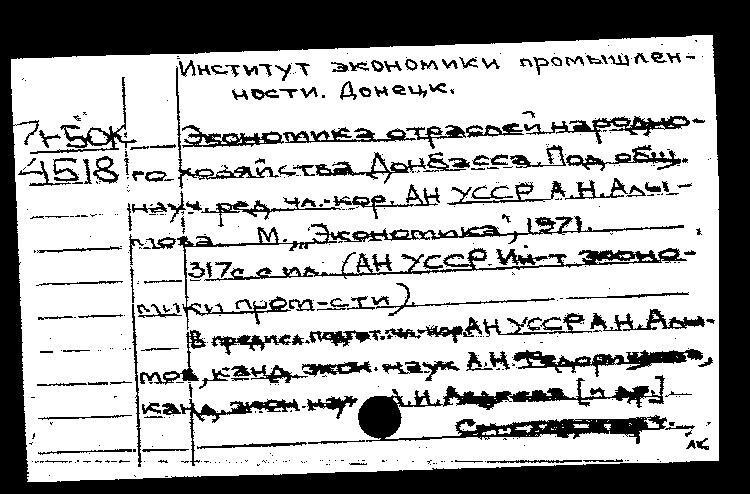 Институт экономики промышлен-
ности. Донецк.
71-50к. Экономика отраслей народно-
4518 го хозяйства Донбасса. Под общ.
науч. ред. чл.-кор. АН УССР А.Н. Алы-
мова. М., „Экономика", 1971.
317с. с ил. (АН УССР. Ин-т эконо-
мики пром-сти).
В предисл. подгот. чл.-кор. АН УССР А.Н. Алы-
мов, канд. экон. наук А.Н.
канд. экон. наук А.И. [и др.].
АК